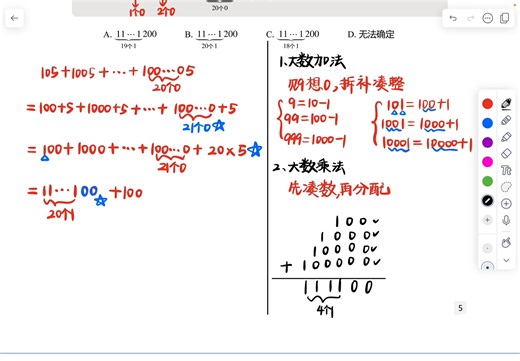 1个0 2个0 20个0
A. 11⋯1200 B. 11⋯1200 C. 11⋯1200 D. 无法确定
19个1 20个1 18个1
105+1005+⋯+100⋯05
20个0
=100+5+1000+5+⋯+100⋯0+5
21个0☆
=100+1000+⋯+100⋯0+20×5☆
21个0
=11⋯100☆+100
20个1
1、大数加法
想0,拆补凑整
9=10-1
99=100-1
999=1000-1
101=100+1
1001=1000+1
10001=10000+1
2、大数乘法
先凑数,再分配
100✓
1000✓
10000✓
+100000✓
111100
4个1
5